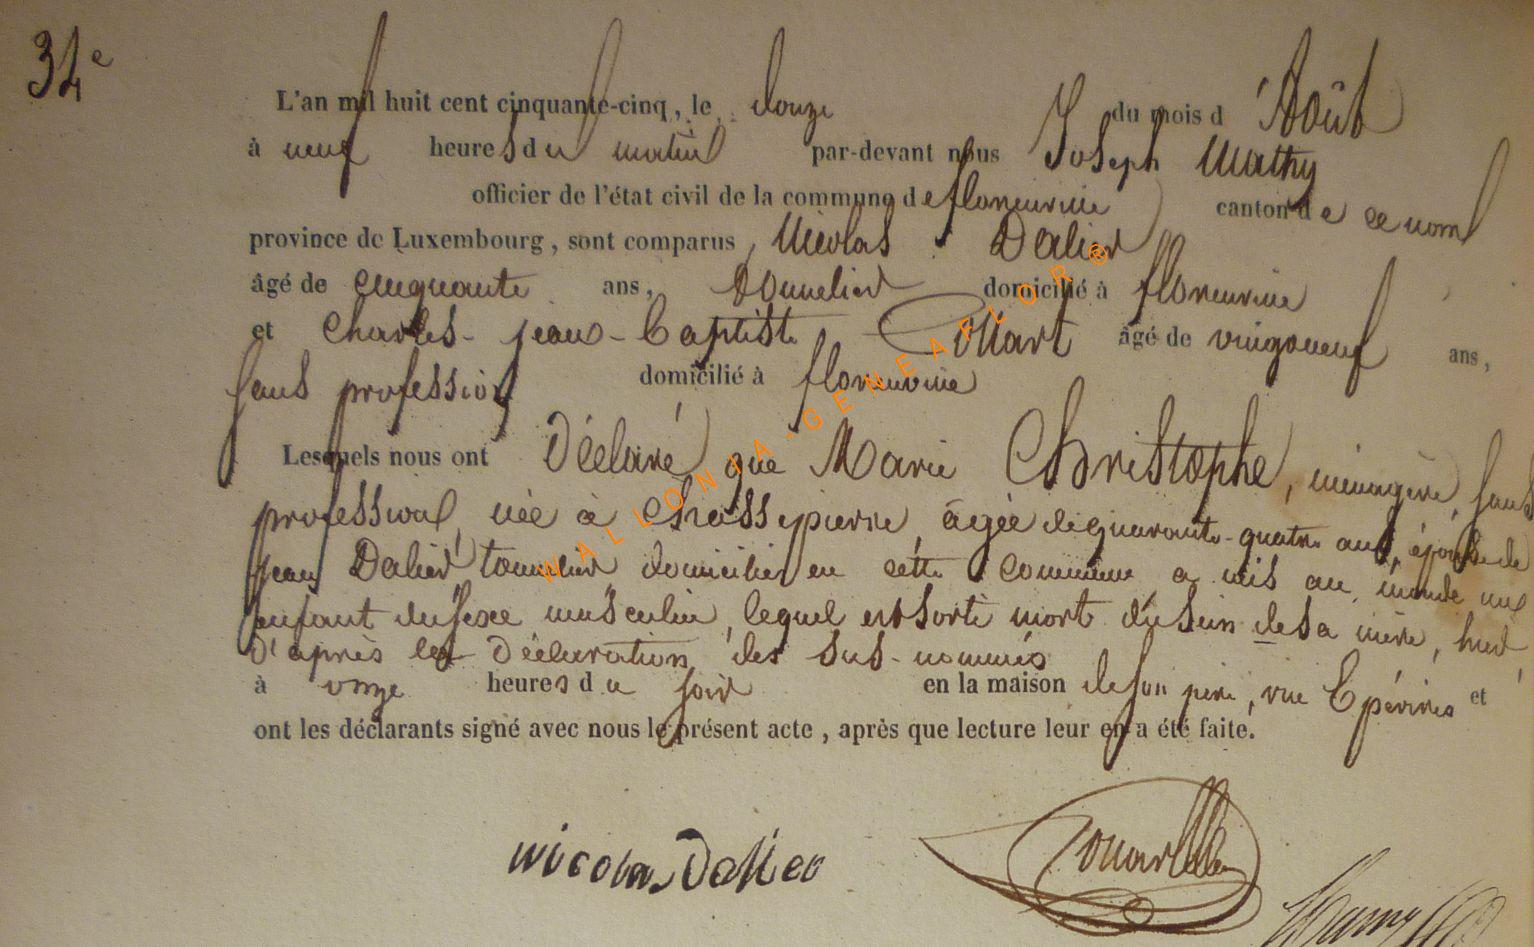 34e
L'an mil huit cent cinquante-cinq, le douze du mois d'Août
à neuf heures du matin par-devant nous Joseph Mathy
officier de l'état civil de la commune de florenville canton de ce nom
province de Luxembourg, sont comparus, Nicolas Dalier
âgé de cinquante ans, tonnelier domicilié à florenville
et Charles-jean-Baptiste âgé de vingt neuf ans,
sans profession domicilié à florenville
Lesquels nous ont Déclaré que Marie Christophe, ménagère, sans
profession, née à chassepierre, agée de quarante-quatre ans, épouse de
jean Dalier tonnelier domicilié en cette commune a mis au monde un
enfant du sexe masculin, lequel est sorti mort du sein de sa mère, hier,
d'après la Déclaration des sus-nommés
à onze heures du soir en la maison de son père, rue et
ont les déclarants signé avec nous le présent acte, après que lecture leur en a été faite.
Nicolas Dalier
WALLONIA-GENEAFLOR®